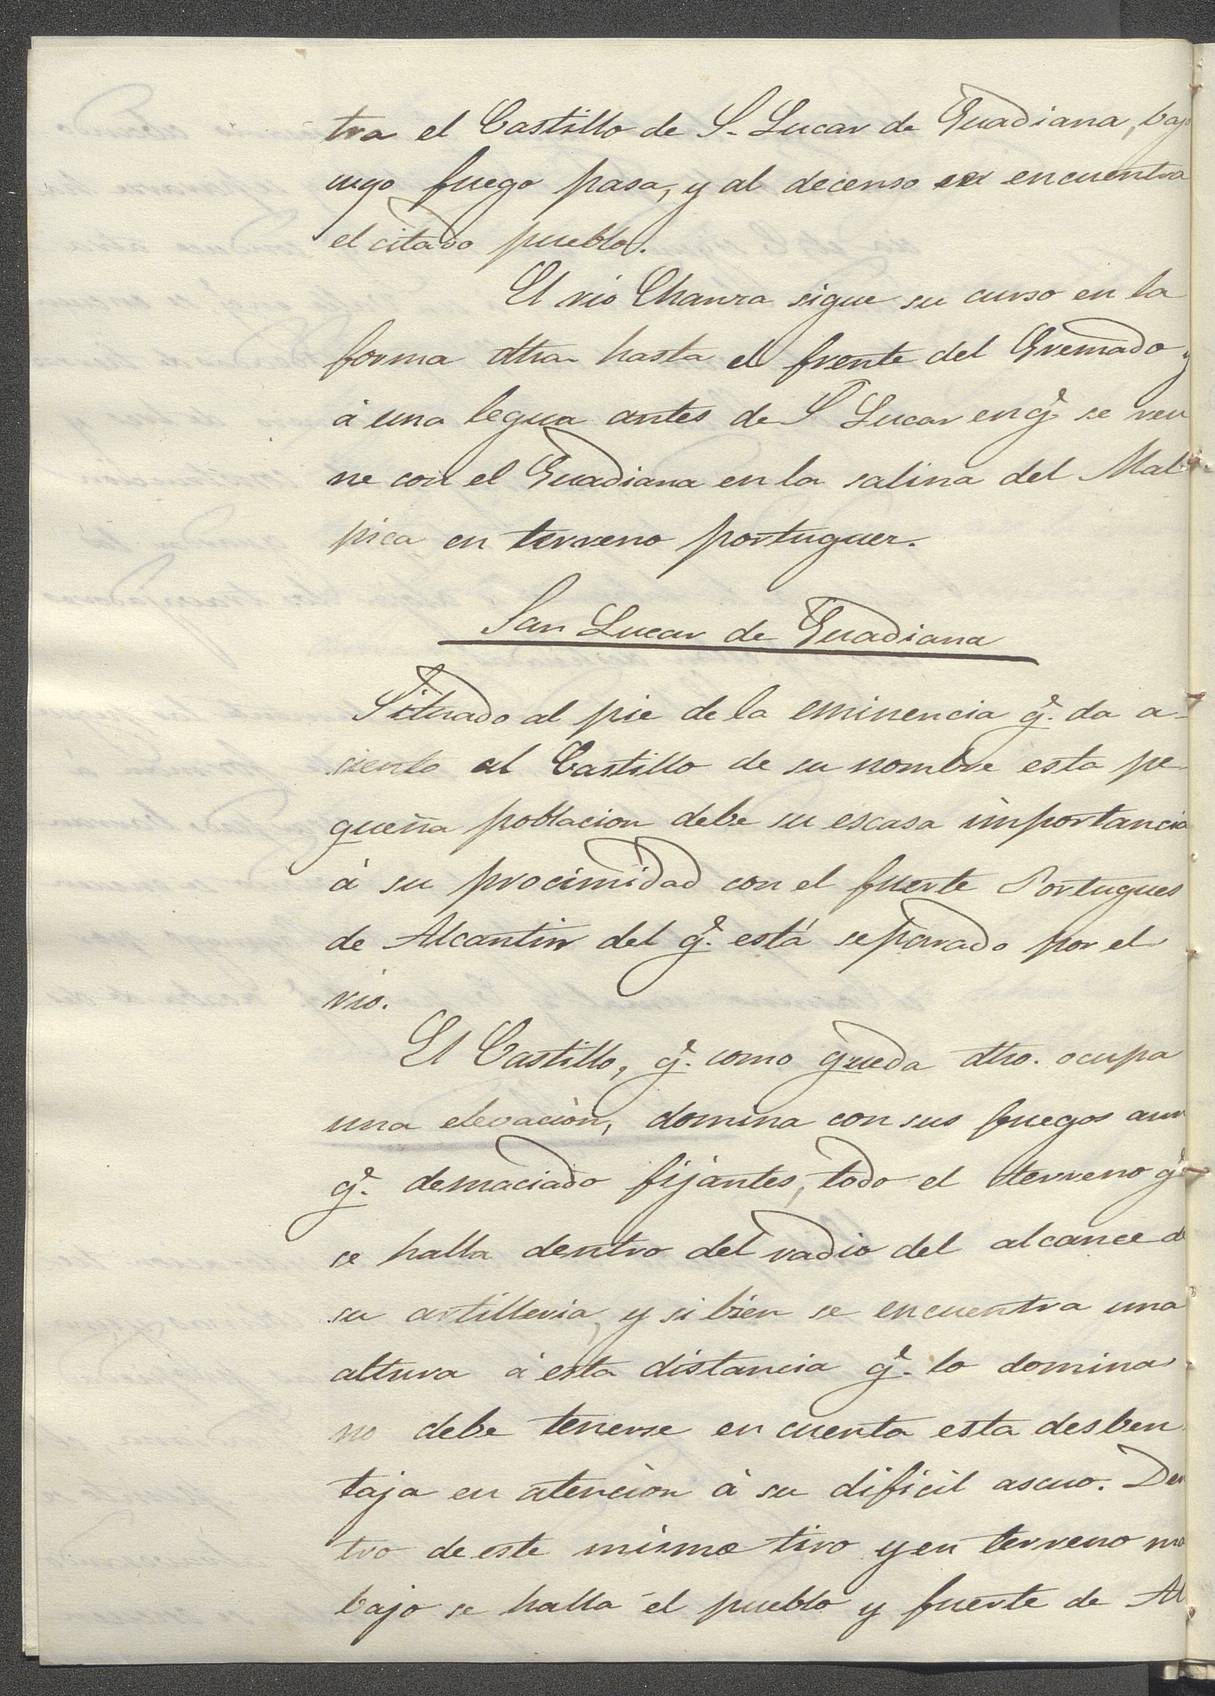 tra el Castillo de S. Lucar de Guadiana, bajo
cuyo fuego pasa, y al decenso se encuentra
el citado pueblo.
El rio Chanza sigue su curso en la
forma dha hasta el frente del Granado y
á una legua antes de S Lucar en q.e se reu
ne con el Guadiana en la salina del Mal
pica en terreno portugues.
San Lucar de Guadiana
Situado al pie de la eminencia q.e da a-
siento al Castillo de su nombre esta pe-
queña poblacion debe su escasa importancia
á su procimidad con el fuerte Portugues
de Alcantin del q.e está separado por el
rio.
El Castillo, q.e como queda dho. ocupa
una elevación, domina con sus fuegos aun
q.e demaciado fijantes, todo el terreno q.e
se halla dentro del radio del alcance de
su artilleria, y si bien se encuentra una
altura á esta distancia q.e lo domina
no debe tenerse en cuenta esta desben
taja en atención á su dificil acceso. Den
tro de este mismo tiro y en terreno mas
bajo se halla el pueblo y fuerte de Al